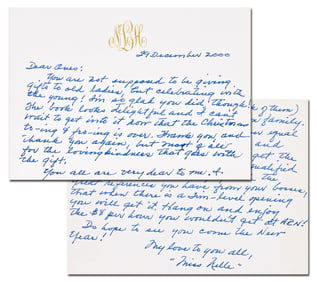 NLH
29 December 2000
Dear Ones:
You are not supposed to be giving
gifts to old ladies, but celebrating with
the young! I'm so glad you did, though!
The book looks delightful and I can't
wait to get into it now that the Christmas
to-ing & fro-ing is over. Thank you, and
thank you again, but most of all
for the lovingkindness that goes with
the gift.
You all are very dear to me. I
of them)
family.
equal
and
got the
qualified
the
that references you have from your bosses,
that when there is a -level opening
you will get it. Hang on and enjoy
the $8 per hour you wouldn't get at
Do hope to see you come the New
Year!
My love to you all,
"Miss Nelle"